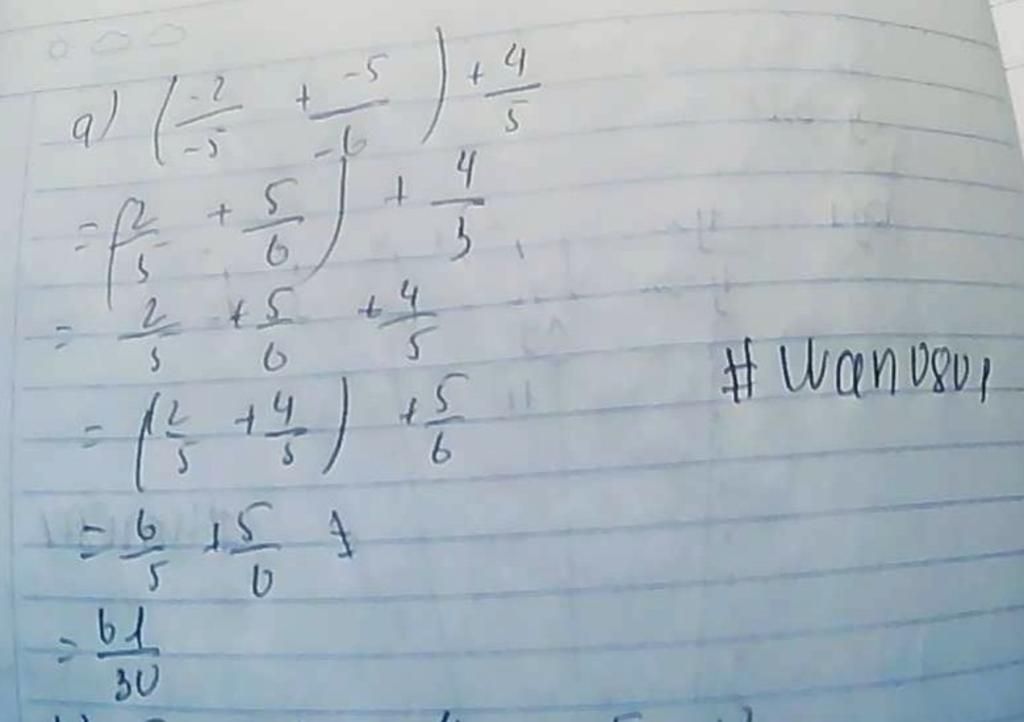 a) (-2/-5 + -5/-6) + 4/5
= (2/5 + 5/6) + 4/5
= 2/5 + 5/6 + 4/5
= (2/5 + 4/5) + 5/6
= 6/5 + 5/6
= 61/30